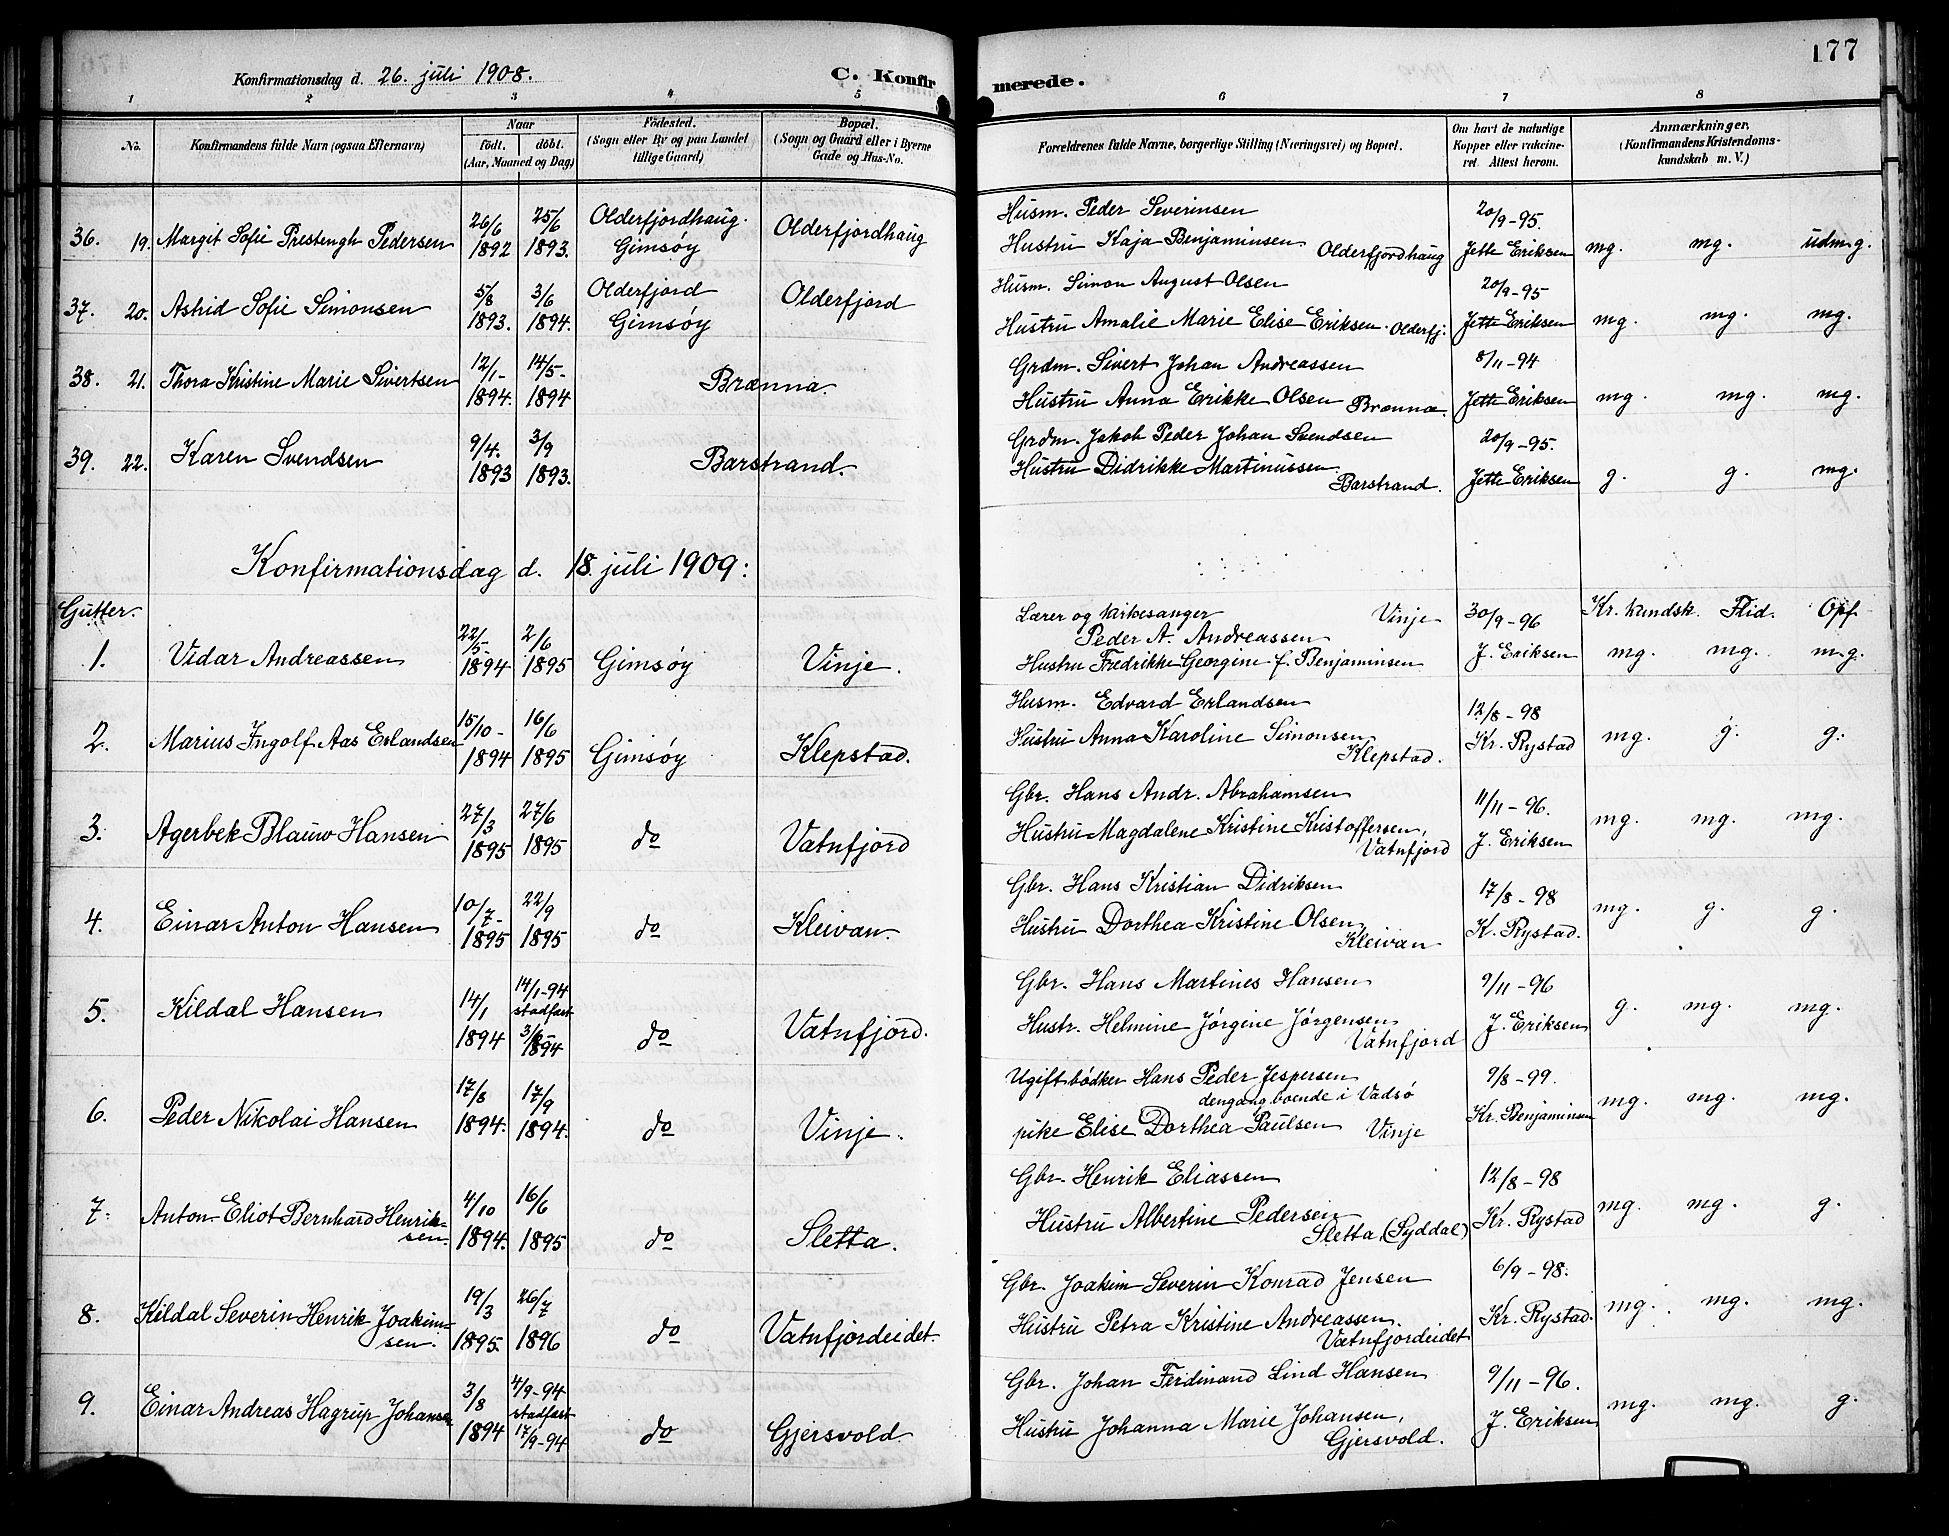 177
Konfirmationsdag d. 26. juli 1908.
C. Konfirmerede.
1 2 3 4 5 6 7 8
No.
Konfirmandens fulde Navn (ogsaa Efternavn)
Naar
født. døbt.
(Aar, Maaned og Dag)
Fødested.
(Sogn eller By og paa Landet
tillige Gaard)
Bopæl.
(Sogn og Gaard eller i Byerne
Gade og Hus-No.
Forældrenes fulde Navne, borgerlige Stilling (Næringsvei) og Bopæl.
Om havt de naturlige
Kopper eller vakcine-
ret. Attest herom.
Anmærkninger.
(Konfirmandens Kristendoms-
kundskab m. V.)
26/6 25/6 Olderfjordhaug. Husm. Peder Severinsen 20/9-95.
36. 19. Margit Sofie Prestengh Pedersen 1892 1893. Gimsøy Olderfjordhaug Hustru Kaja Benjaminsen Olderfjordhaug Jette Eriksen mg. mg. udm.g.
5/8 3/6 Olderfjord Husm. Simon August Olsen 20/9-95
37. 20. Astrid Sofie Simonsen 1893. 1894. Gimsøy Olderfjord Hustru Amalie Marie Elise Eriksen. Olderfj: Jette Eriksen mg. mg. mg.
12/1- 14/5- Grdm. Sivert Johan Andreassen 8/11-94
38. 21. Thora Kristine Marie Sivertsen 1894. 1894 Brænna. Hustru Anna Erikke Olsen Brænna. Jette Eriksen mg. mg. mg.
9/4. 3/9 Grdm. Jakob Peder Johan Svendsen 20/9-95.
39. 22. Karen Svendsen 1893 1893. Barstrand. Hustru Didrikke Martinussen. Barstrand. Jette Eriksen g. g. mg.
Konfirmationsdag d. 18. juli 1909:
Gutter. Lærer og kirkesanger Vinje 30/9-96 Kr. kundsk. Flid. Opf.
22/5- 2/6 Peder A. Andreassen
1. Vidar Andreassen 1894 1895 Gimsøy Vinje. Hustru Fredrikke Georgine f. Benjaminsen J. Eriksen mg. mg. m.g.
15/10- 16/6 Husm. Edvard Erlandsen 12/8-98
2. Marius Ingolf Aas Erlandsen 1894 1895 Gimsøy Klepstad. Hustru Anna Karoline Simonsen, Klepstad. Kr. Rystad mg. g. g.
27/3 27/6 Gbr. Hans Andr. Abrahamsen 11/11-96.
3. Agerbek Blauw Hansen 1895 1895 do Vatnfjord Hustru Magdalene Kristine Kristoffersen, Vatnfjord J. Eriksen mg. mg. mg.
10/7- 22/9 Gbr. Hans Kristian Didriksen 17/8-98
4. Einar Anton Hansen 1895 1895 do Kleivan. Hustru Dorthea Kristine Olsen, Kleivan K. Rystad. mg. g. g.
14/1 14/1-94 stadfæst Gbr. Hans Martines Hansen 9/11-96
5. Kildal Hansen 1894 1894 do Vatnfjord. Hustr. Helmine Jørgine Jørgensen Vatnfjord J. Eriksen g. mg. mg.
17/8 17/9 Ugift bødker Hans Peder Jespersen 9/8-99.
dengang boende i Vadsø
6. Peder Nikolai Hansen 1894. 1894. do Vinje. pike Elise Dorthea Paulsen Vinje Kr. Benjaminsen mg. mg. mg.
4/10 16/6 Gbr. Henrik Eliassen 12/8-98
7. Anton Eliot Bernhard Henriksen. 1894. 1895 do Sletta. Hustru Albertine Pedersen Sletta, (Syddal) Kr. Rystad mg. mg. g.
19/3 26/7 Gbr. Joakim Severin Konrad Jensen 6/9-98.
8. Kildal Severin Henrik Joakimsen. 1895. 1896 do Vatnfjordeidet Hustru Petra Kristine Andreassen. Vatnfjordeidet Kr. Rystad. mg. mg. mg.
3/8 4/9-94 stadfæst Gbr. Johan Ferdinand Lind Hansen 9/11-96.
9. Einar Andreas Hagrup Johansen 1894 17/9-94 do Gjersvold. Hustru Johanna Marie Johansen, Gjersvold. J. Eriksen mg. mg. g.